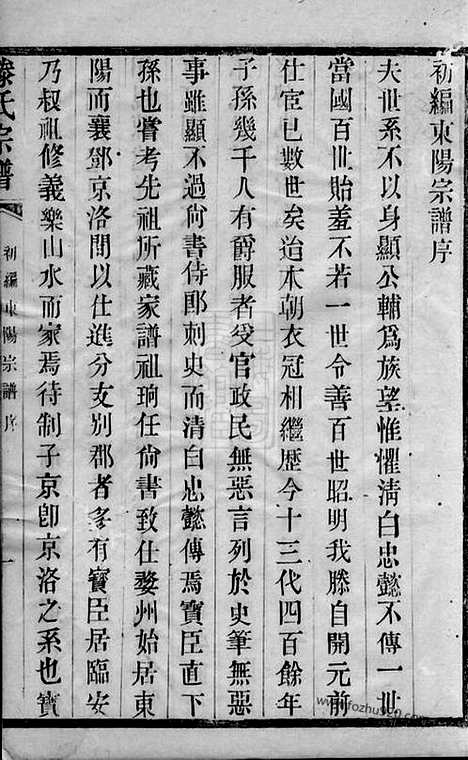 初編東陽宗譜序
夫世系不以身顯公輔爲族望惟懼淸白忠懿不傳一世
當國百世貽羞不若一世令善百世昭明我滕自開元前
仕宦已數世矣迨本朝衣冠相繼歷今十三代四百餘年
子孫幾千人有爵服者受官政民無惡言列於史筆無惡
事雖顯不過尙書侍郎刺史而清白忠懿傳焉寶臣直下
孫也嘗考先祖所藏家譜祖珦任尙書致仕婺州始居東
陽而襄鄧京洛間以仕進分支別郡者多有寶臣居臨安
乃叔祖修義樂山水而家焉待制子京卽京洛之系也寶
滕氏宗譜
初編東陽宗譜序
一
www.fozhu920.com